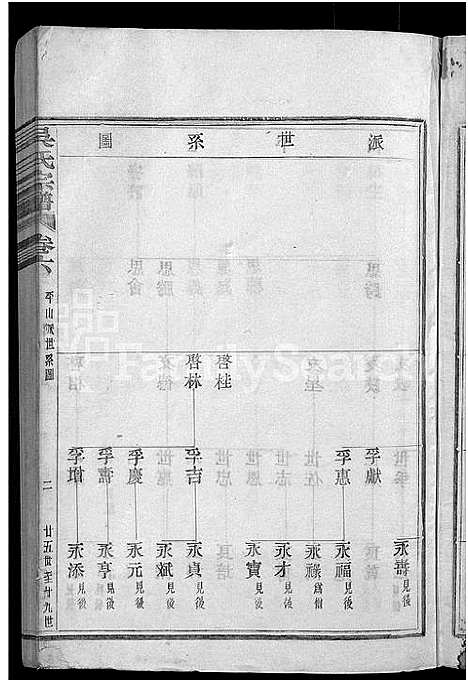 派世系圖
啓桂
啓林
孚獻
孚惠
孚吉
孚慶
孚壽
孚增
永壽見後
永福見後
永祿
永才見後
永寶見後
永貞見後
永斌見後
永元見後
永亨見後
永添見後
吳氏宗譜
卷六
平山派世系圖
二
廿五世至廿九世
FamilySearch